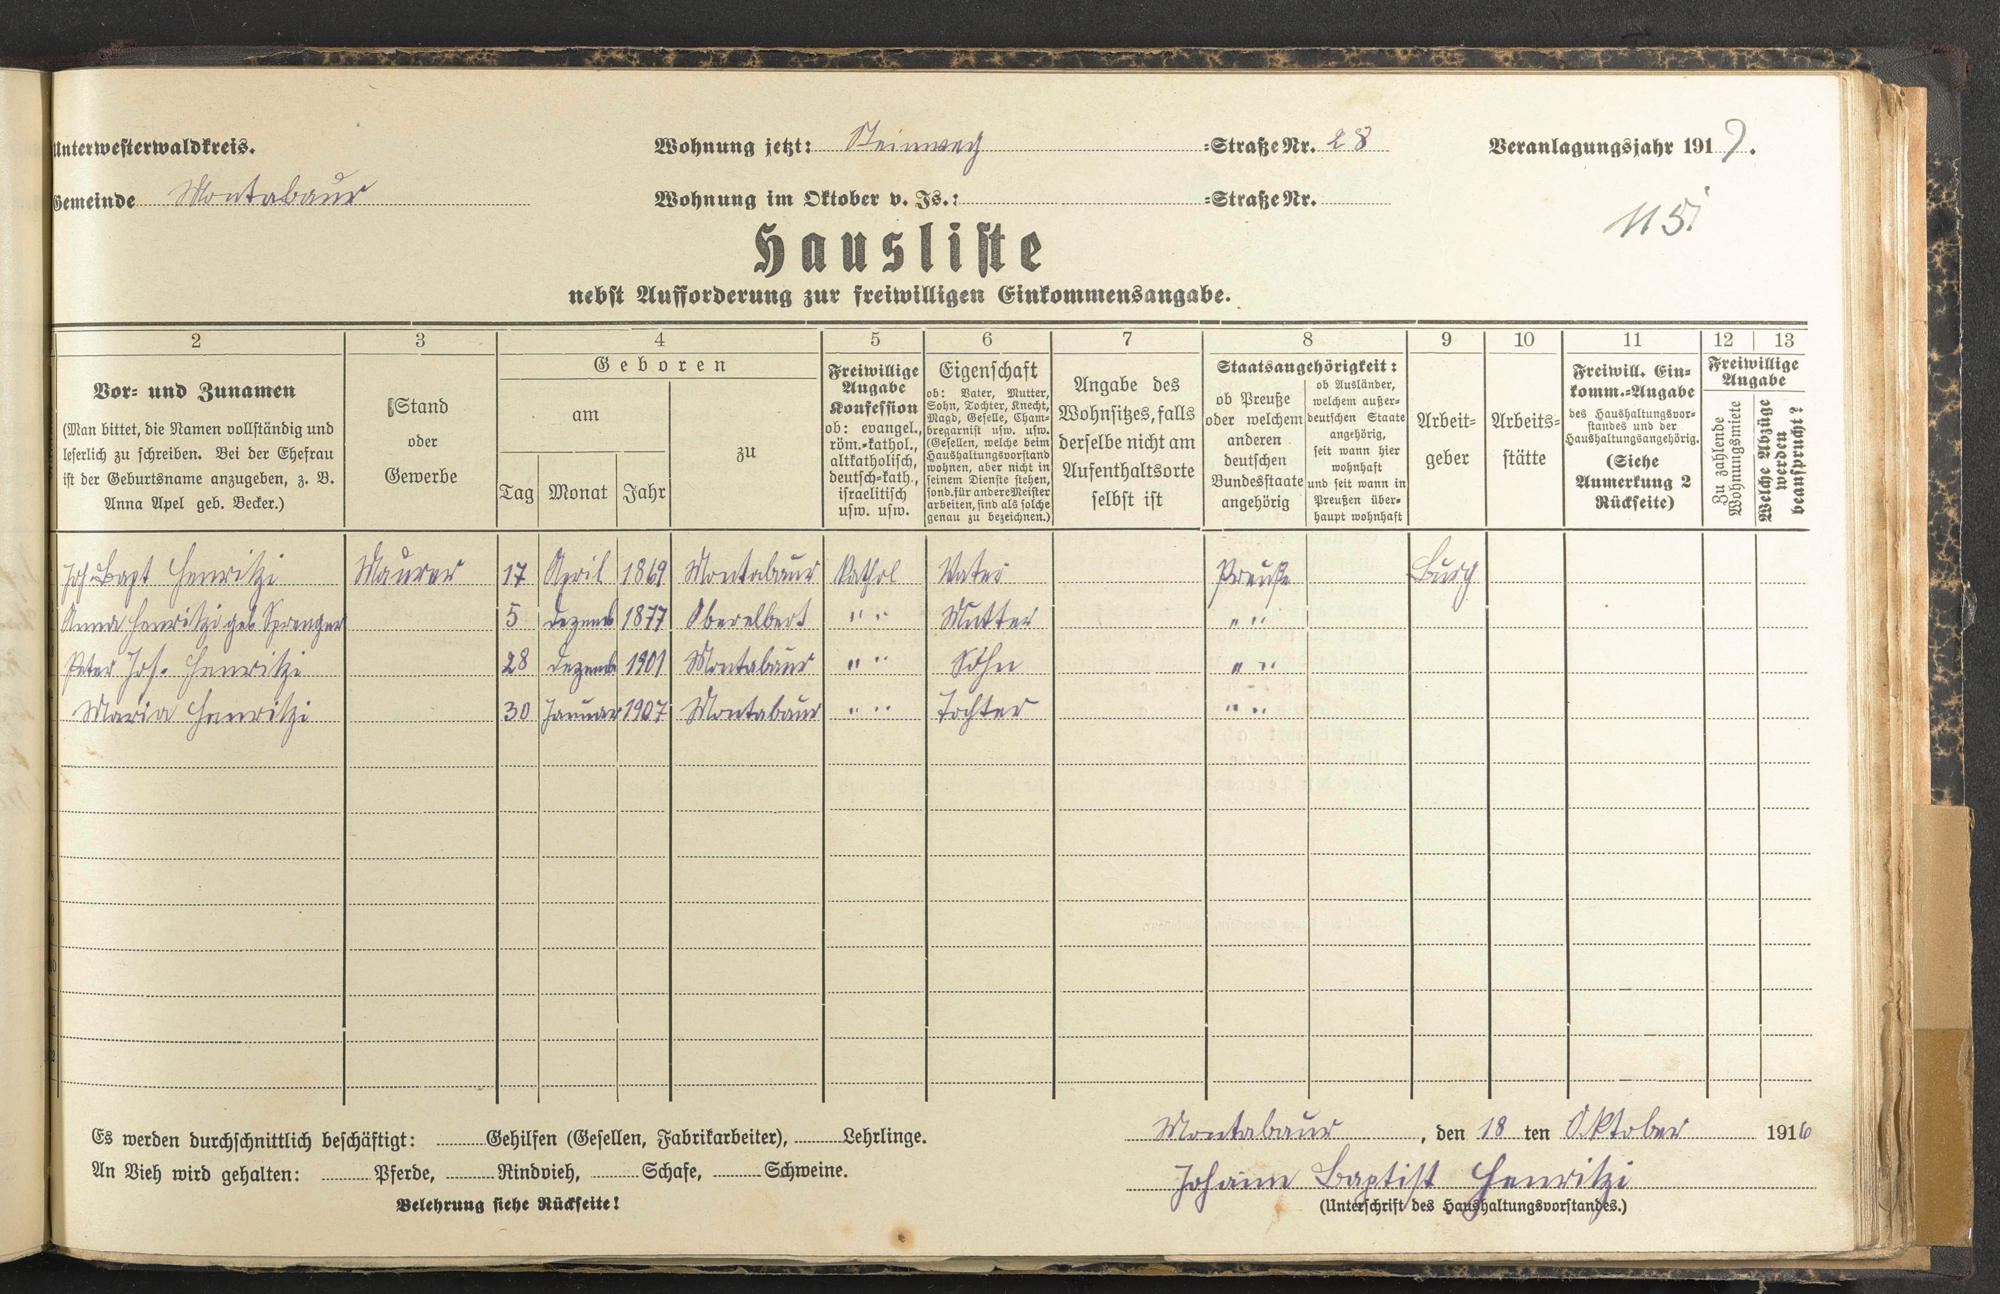 Unterwesterwaldkreis. Wohnung jetzt: Steinweg =Straße Nr. 28 Veranlagungsjahr 1917.
Gemeinde Montabaur Wohnung im Oktober v. Js.: =Straße Nr.
115
Hausliste
nebst Aufforderung zur freiwilligen Einkommensangabe.
2 3 4 5 6 7 8 9 10 11 12 13
Vor= und Zunamen
(Man bittet, die Namen vollständig und
leserlich zu schreiben. Bei der Ehefrau
ist der Geburtsname anzugeben, z. B.
Anna Apel geb. Becker.)
Stand
oder
Gewerbe
Geboren
am
Tag Monat Jahr
zu
Freiwillige
Angabe
Konfession
ob: evangel.,
röm.=kathol.,
altkatholisch,
deutsch=kath.,
israelitisch
usw. usw.
Eigenschaft
ob: Vater, Mutter,
Sohn, Tochter, Knecht,
Magd, Geselle, Cham=
bregarnist usw. usw.
(Gesellen, welche beim
Haushaltungsvorstand
wohnen, aber nicht in
seinem Dienste stehen,
sond. für andere Meister
arbeiten, sind als solche
genau zu bezeichnen.)
Angabe des
Wohnsitzes, falls
derselbe nicht am
Aufenthaltsorte
selbst ist
Staatsangehörigkeit:
ob Preuße
oder welchem
anderen
deutschen
Bundesstaate
angehörig
ob Ausländer,
welchem außer=
deutschen Staate
angehörig,
seit wann hier
wohnhaft
und seit wann in
Preußen über=
haupt wohnhaft
Arbeit=
geber
Arbeits=
stätte
Freiwill. Ein=
komm.=Angabe
des Haushaltungsvor=
standes und der
Haushaltungsangehörig.
(Siehe
Anmerkung 2
Rückseite)
Freiwillige
Angabe
Zu zahlende
Wohnungsmiete
Welche Abzüge
werden
beansprucht?
Joh. Bapt Henritzi Maurer 17 April 1869 Montabaur Kathol Vater Preuße Burg
Anna Henritzi geb Sprenger 5 Dezemb 1877 Oberelbert " " Mutter " "
Peter Jos. Henritzi 28 Dezemb 1901 Montabaur " " Sohn " "
Maria Henritzi 30 Januar 1907 Montabaur " " Tochter " "
Es werden durchschnittlich beschäftigt: Gehilfen (Gesellen, Fabrikarbeiter), Lehrlinge.
An Vieh wird gehalten: Pferde, Rindvieh, Schafe, Schweine.
Belehrung siehe Rückseite!
Montabaur, den 18 ten Oktober 1916
Johann Baptist Henritzi
(Unterschrift des Haushaltungsvorstandes.)